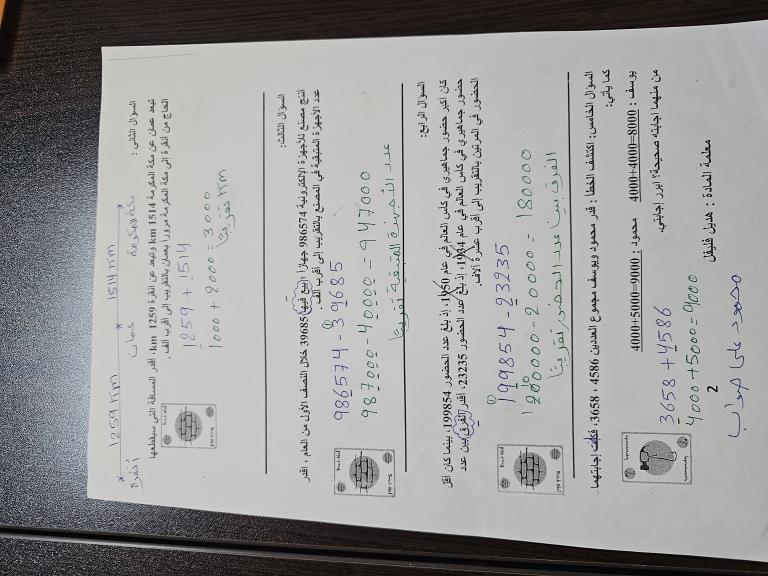 السؤال الثاني :
أنقرة 1259 KM عمان 1514 KM مكة المكرمة
تبعد عمان عن مكة المكرمة 1514 km وتبعد عن انقرة 1259 km ، اقدر المسافة التي سيقطعها
الحاج من انقرة الى مكة المكرمة مرورا بعمان بالتقريب إلى أقرب الف .
1259 + 1514
1000 + 2000 = 3000
KM تقريبًا
السؤال الثالث:
انتج مصنع للأجهزة الإلكترونية 986574 جهازا ابيع فيها 39685 خلال النصف الأول من العام ، اقدر
عدد الأجهزة المتبقية في المصنع بالتقريب إلى أقرب الف
986574 - 39685
987000 - 40000 = 947000
عدد الأجهزة المتبقية تقريبًا
السؤال الرابع:
كان اكبر حضور جماهيري في كاس العالم في عام 1950، إذ بلغ عدد الحضور 199854، بينما كان اقل
حضور جماهيري في كاس العالم في عام 1934، إذ بلغ عدد الحضور 23235، اقدر الفرق بين عدد
الحضور في المرتين بالتقريب إلى اقرب عشرة آلاف.
199854 - 23235
200000 - 20000 = 180000
الفرق بين عدد الحضور تقريبًا
السؤال الخامس: اكتشف الخطا : قدر محمود ويوسف مجموع العددين 4586 ، 3658، فكانت اجابتهما
كما يأتي:
يوسف : 4000+4000=8000 محمود : 4000+5000=9000
من منهما اجابته صحيحة؟ ابرر إجابتي.
3658 + 4586
4000 + 5000 = 9000
معلمة المادة : هديل قليقل
2
محمود على صواب